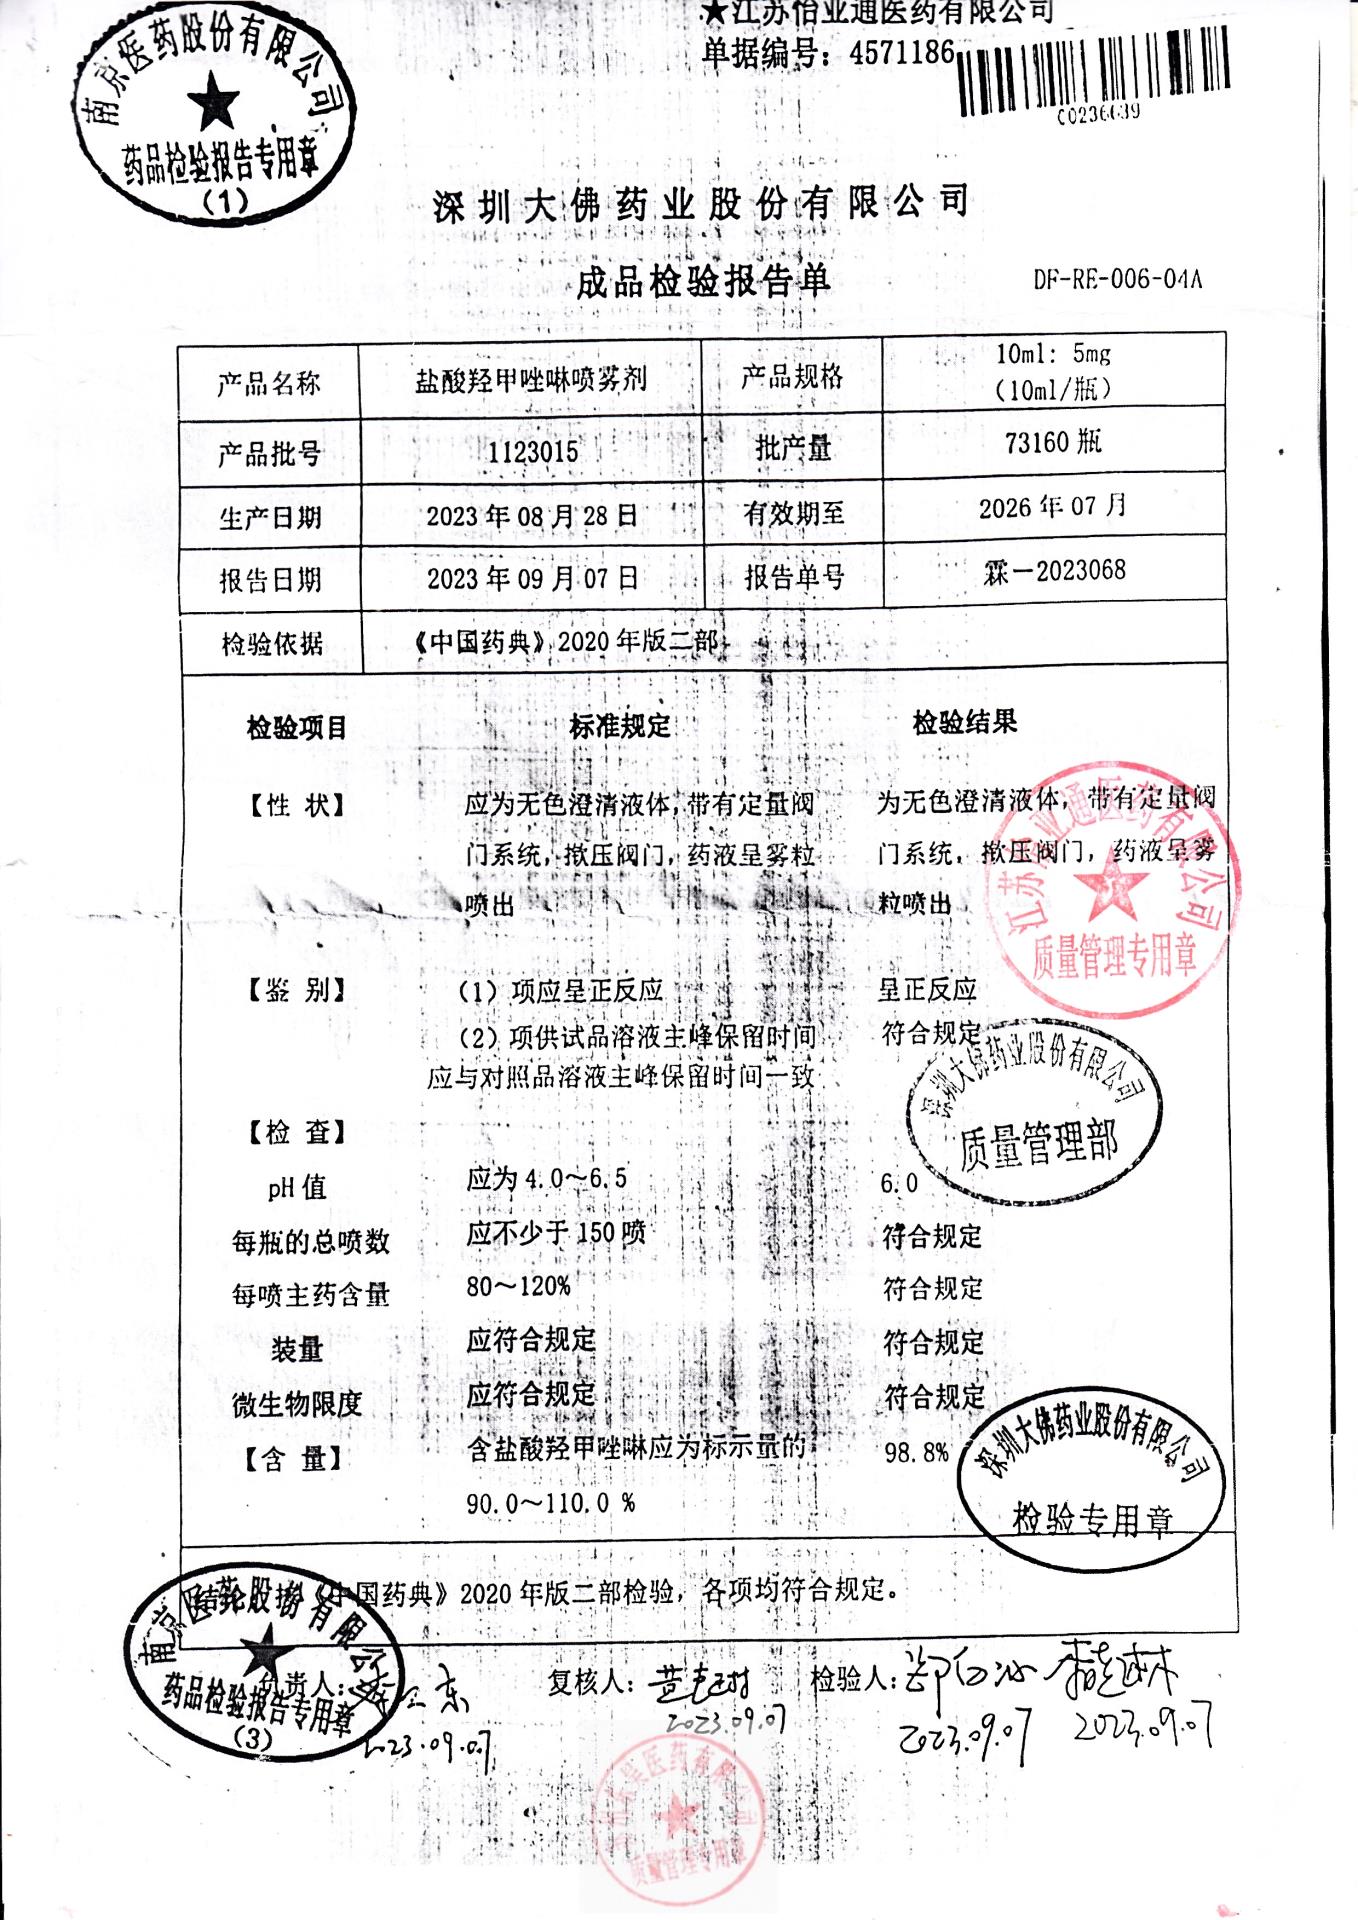 ★江苏怡业通医药有限公司
单据编号：4571186
南京医药股份有限公司
药品检验报告专用章
(1)
深圳大佛药业股份有限公司
成品检验报告单
DF-RE-006-04A
产品名称 盐酸羟甲唑啉喷雾剂 产品规格 10ml：5mg
（10ml/瓶）
产品批号 1123015 批产量 73160瓶
生产日期 2023年08月28日 有效期至 2026年07月
报告日期 2023年09月07日 报告单号 霖一2023068
检验依据 《中国药典》2020年版二部
检验项目 标准规定 检验结果
【性 状】 应为无色澄清液体，带有定量阀 为无色澄清液体，带有定量阀
门系统，揿压阀门，药液呈雾粒 门系统，揿压阀门，药液呈雾
喷出 粒喷出
江苏怡业通医药有限公司
质量管理专用章
【鉴 别】 （1）项应呈正反应 呈正反应
（2）项供试品溶液主峰保留时间 符合规定
应与对照品溶液主峰保留时间一致
深圳大佛药业股份有限公司
质量管理部
【检 查】
pH值 应为4.0～6.5 6.0
每瓶的总喷数 应不少于150喷 符合规定
每喷主药含量 80～120% 符合规定
装量 应符合规定 符合规定
微生物限度 应符合规定 符合规定
【含 量】 含盐酸羟甲唑啉应为标示量的 98.8%
90.0～110.0 %
深圳大佛药业股份有限公司
检验专用章
结论：按《中国药典》2020年版二部检验，各项均符合规定。
南京医药股份有限公司
药品检验报告专用章
(3)
负责人： 复核人： 检验人：
2023.09.07 2023.09.07 2023.09.07 2023.09.07
质量管理专用章